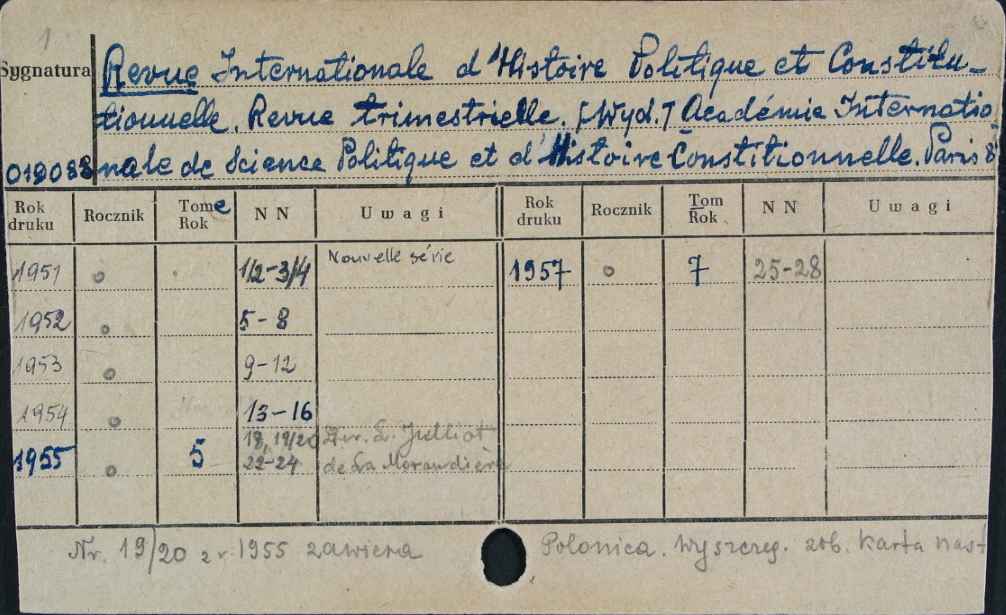 1
Sygnatura
Revue Internationale d'Histoire Politique et Constitu-
tionnelle. Revue trimestrielle. [Wyd.] Académie Internatio
019088 nale de Science Politique et d'Histoire Constitionnelle. Paris 8°
Rok druku Rocznik Tome Rok N N Uwagi Rok druku Rocznik Tom Rok N N Uwagi
1951 o 1/2-3/4 Nouvelle série 1957 o 7 25-28
1952 o 5-8
1953 o 9-12
1954 o 13-16
1955 o 5 18, 19/20 L. Julliot
22-24 de La Morandière
Nr. 19/20 z r. 1955 zawiera Polonica. Wyszczeg. zob. karta nast